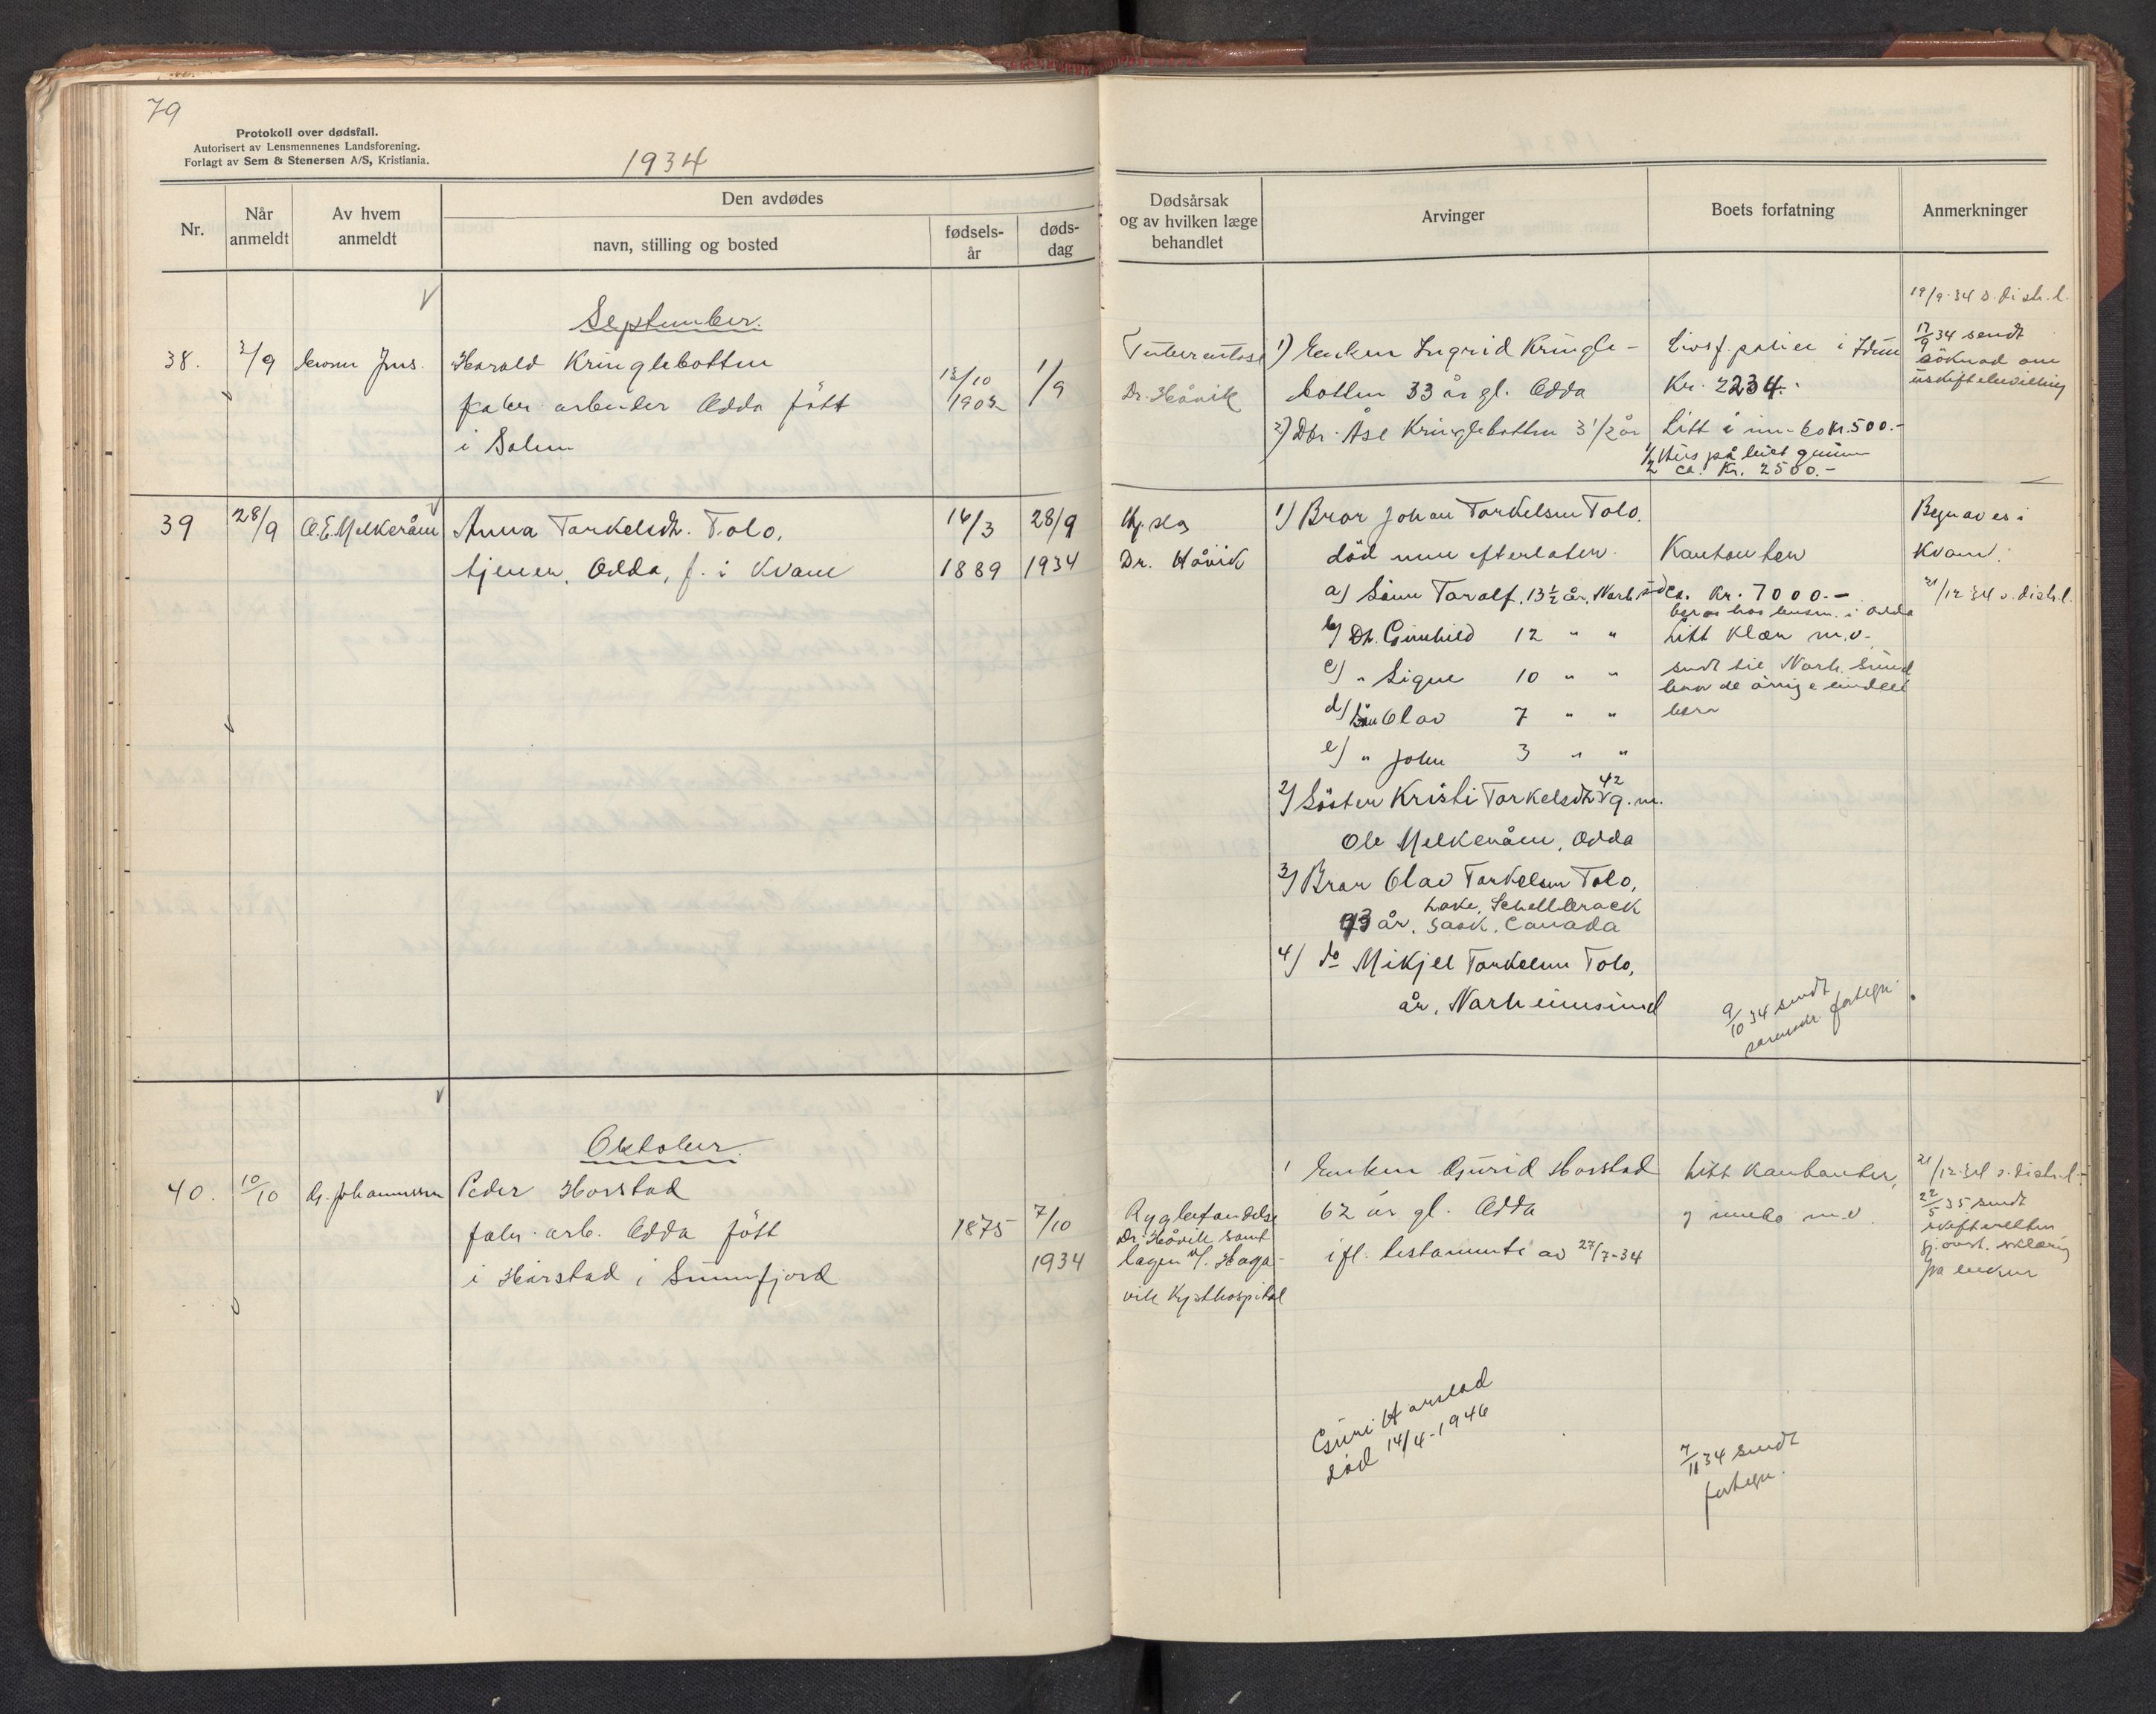 79
Protokoll over dødsfall.
Autorisert av Lensmennenes Landsforening.
Forlagt av Sem & Stenersen A/S, Kristiania.
1934
Nr.
Når anmeldt
Av hvem anmeldt
Den avdødes
navn, stilling og bosted
fødsels-
år
døds-
dag
Dødsårsak
og av hvilken læge
behandlet
Arvinger
Boets forfatning
Anmerkninger
September.
38. 3/9 Jms. Harald Kringlebotten
fabr. arbeider Odda født
i Solum
1902
1/9
Tuberculose
Dr. Håvik
1) Enken Ingrid Kringle-
botten 33 år gl. Odda
2) Dtr. Åse Kringlebotten 3 1/2 år
Livsf. police i Idun
Kr. 2234.
Litt i innbo Kr. 500.-
1/2 Hus på leiet grunn
ca. Kr. 2500.-
19/9-34 s. distr. l.
17/9 34 sendt
søknad om
uskiftebevilling
39 28/9 O.E. Melkeråen Anna Torkelsdtr. Tolo,
tjener, Odda, f. i Kvam
16/3
1889
28/9
1934
Hj.slag
Dr. Håvik
1) Bror Johan Torkelsen Tolo.
død men efterlaten
a) Sønn Torolf, 13 1/2 år, Norh.sund
b) Dt. Gunhild 12 " "
c) " Signe 10 " "
d) Sønn Olav 7 " "
e) " John 3 " "
2) Søster Kristi Torkelsdtr 42 g.m.
Ole Melkeråen, Odda
3) Bror Olav Torkelsen Tolo,
Lake, Schellbrook
43 år, Sask. Canada
4) do Mikjel Torkelsen Tolo,
år, Norheimsund
Kontanter
ca. Kr. 7000.-
beror hos lensm. i Odda
Litt klær m.v.
sendt til Norh. sund
hvor de øvrige eiendeler
bero
9/10 34 sendt
forhegn.
Begraves i
Kvam.
21/12-34 s. distr. l.
Oktober.
40. 10/10 G. Johannessen Peder Horstad
fabr. arb. Odda født
i Hårstad i Sunnfjord
1875
7/10
1934
Rygbetendelse
Dr. Håvik samt
lægen v/. Haga-
vik Kysthospital
1 Enken Gurid Horstad
62 år gl. Odda
ifl. testamente av 27/7-34
Litt kontanter,
og innbo m.v
21/12-34 s. distr. l.
22/5 35 sendt
skifteretten
på enken
Guri Harstad
død 14/4-1946
7/11 34 sendt
forhegn.